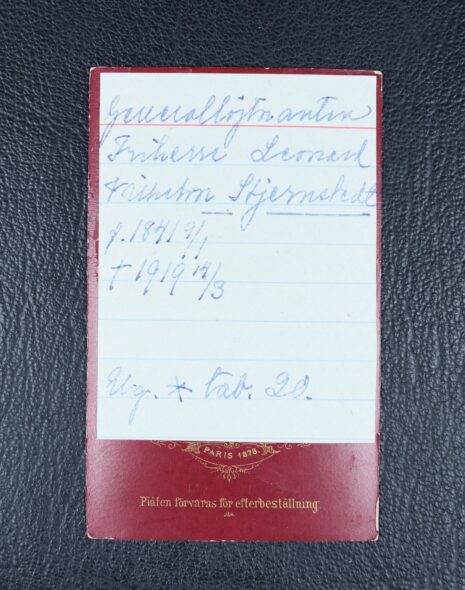 Generallöjtnanten
Friherre Leonard
Wilhelm Stjernstedt
f. 1841 9/1
† 1919 14/3
Elg. * tab. 20.
PARIS 1878.
Plåten förvaras för efterbeställning.